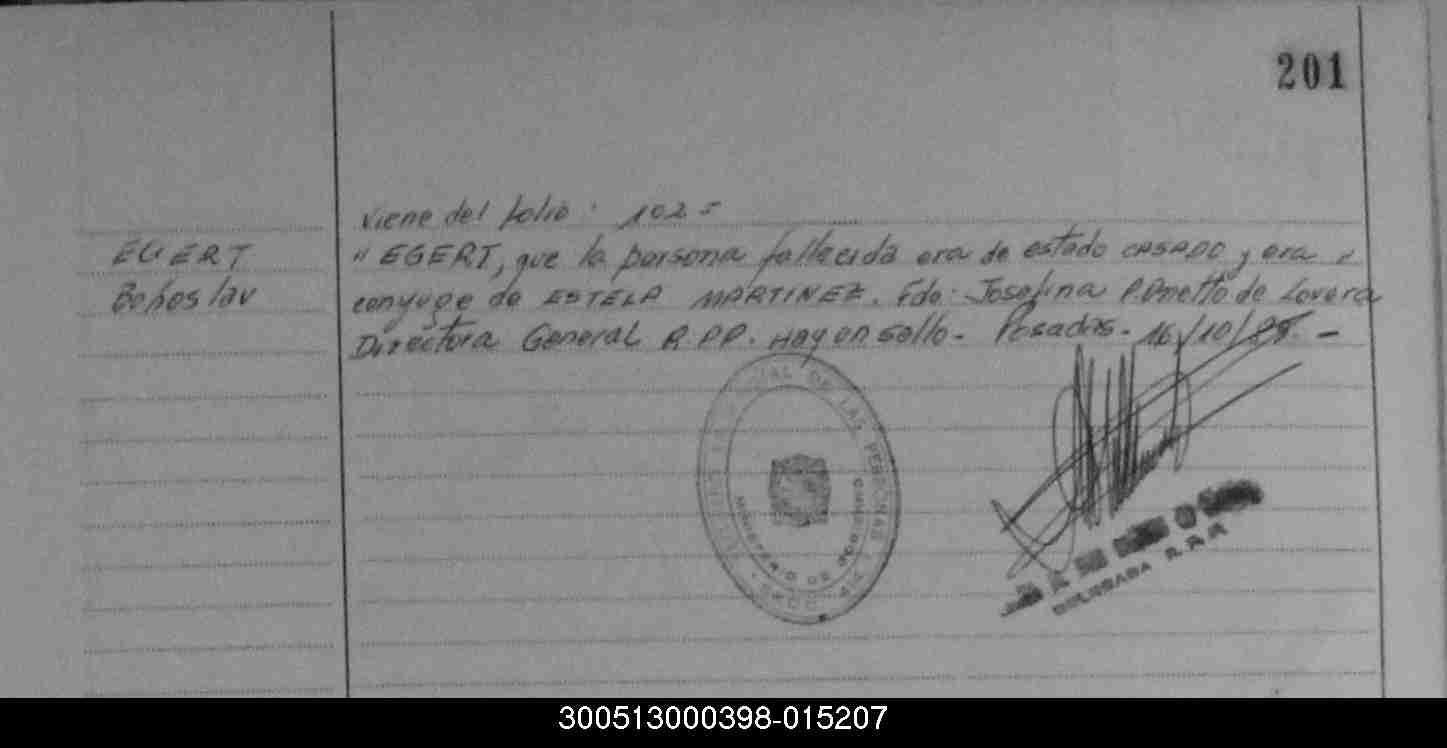 201
viene del folio: 102 =
EGERT
Bohoslav
" EGERT, que la persona fallecida era de estado CASADO y era "
conyuge de ESTELA MARTINEZ. Fdo: Josefina P. Onetto de Lovera
Directora General R.P.P. Hay un sello. Posadas. 16/10/ . -
DE LAS PERSONAS
MINISTERIO DE GOBIERNO
DELEGADA R.P.P.
300513000398-015207